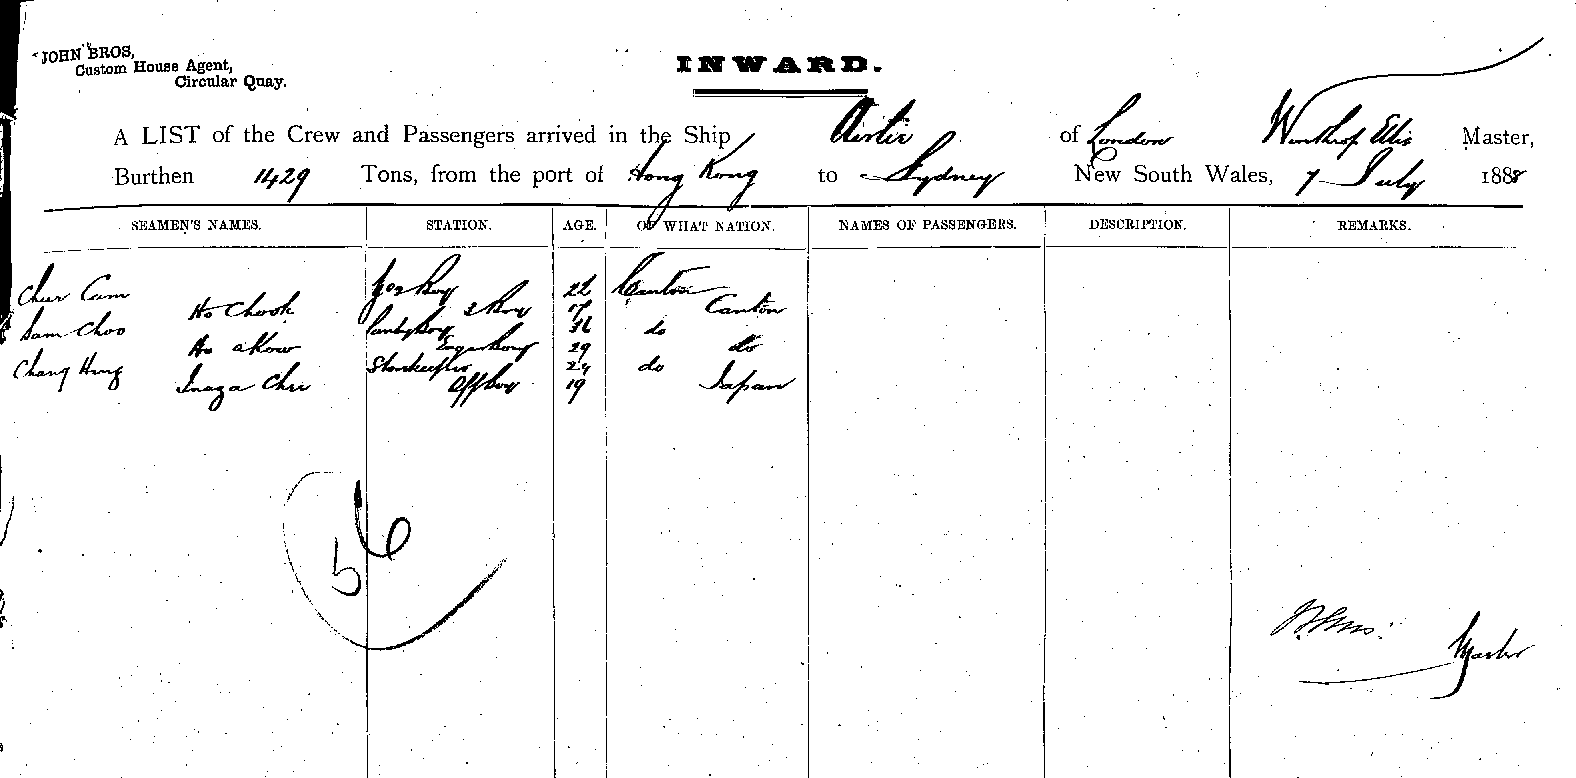 JOHN BROS,
Custom House Agent,
Circular Quay.
INWARD.
A LIST of the Crew and Passengers arrived in the Ship Airlie of London Winthrop Ellis Master,
Burthen 1429 Tons, from the port of Hong Kong to Sydney New South Wales, 7 July 1888
SEAMEN'S NAMES. STATION. AGE. OF WHAT NATION. NAMES OF PASSENGERS. DESCRIPTION. REMARKS.
Chur Cam 22 Canton
Ho Chook 2 Boy 17 Canton
Sam Choo Pantryboy 36 do
Ho aKow 29 do
Chang Hing Storekeeper 24 do
Inaga Chu Off boy 19 Japan
56
Master